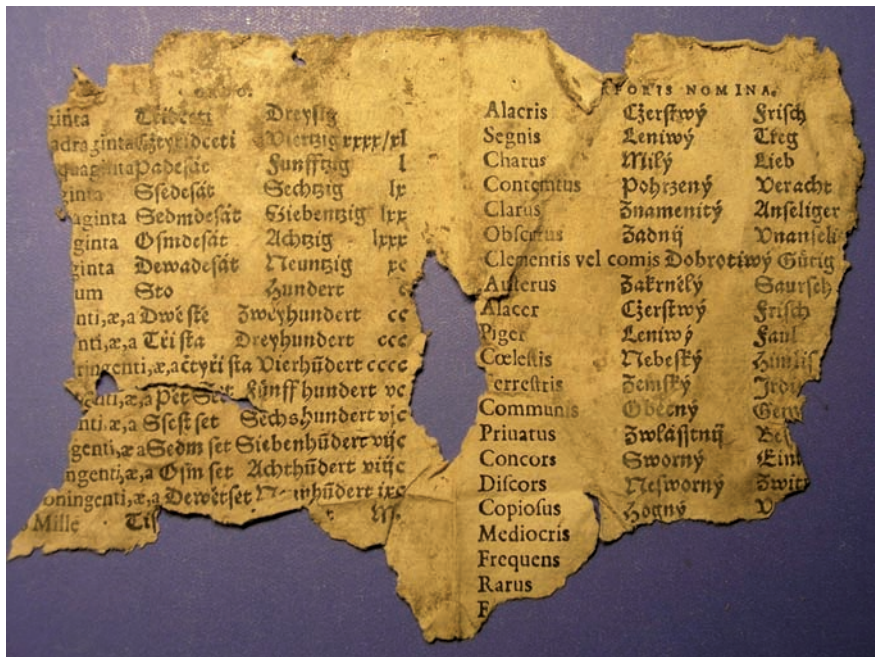 ORDO.
ginta Třidceti Dreyſsig
adraginta Cžtyřidceti Viertzig xxxx/xl
quaginta Padeſát Funfftzig l
ginta Sſedeſát Sechtzig lx
aginta Sedmdeſát Siebentzig lxx
ginta Oſmdeſát Achtzig lxxx
ginta Dewadeſát Neuntzig xc
um Sto Hundert c
nti,æ,a Dwěſtě Zweyhundert cc
nti,æ,a Třiſta Dreyhundert ccc
ringenti,æ,a čtyřiſta Vierhūdert cccc
genti,æ,a Pět Set Fünffhundert vc
nti,æ,a Sſeſtſet Sechshundert vjc
genti,æ,a Sedm ſet Siebenhūdert vijc
ngenti,æ,a Oſm ſet Achthūdert viijc
oningenti,æ,a Dewětſet Neunhūdert ixc
Mille Tiſ M.
RPORIS NOMINA.
Alacris Cžerſtwý Friſch
Segnis Leniwý Treg
Charus Milý Lieb
Contemtus Pohrzený Veracht
Clarus Znamenitý Anſeliger
Obſcurus Zadnij Vnanſeli
Clementis vel comis Dobrotiwý Gütig
Auſterus Zakrnělý Saurſeh
Alacer Cžerſtwý Friſch
Piger Leniwý Faul
Cœleſtis Nebeſký Himliſ
Terreſtris Zemſký Jrdi
Communis Obecný Gem
Priuatus Zwláſſtnij Be
Concors Sworný Ein
Diſcors Neſworný Zwit
Copioſus Hogný V
Mediocris
Frequens
Rarus
F